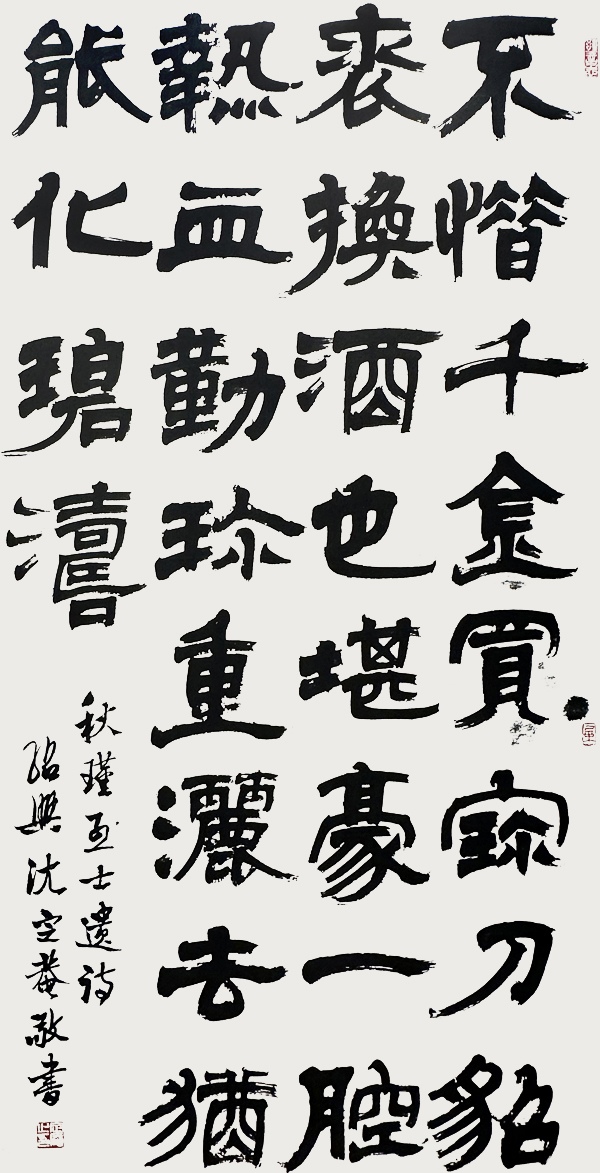 不惜千金買寶刀貂
裘換酒也堪豪一腔
熱血勤珎重灑去猶
能化碧濤
秋瑾烈士遺詩
紹興沈定菴敬書